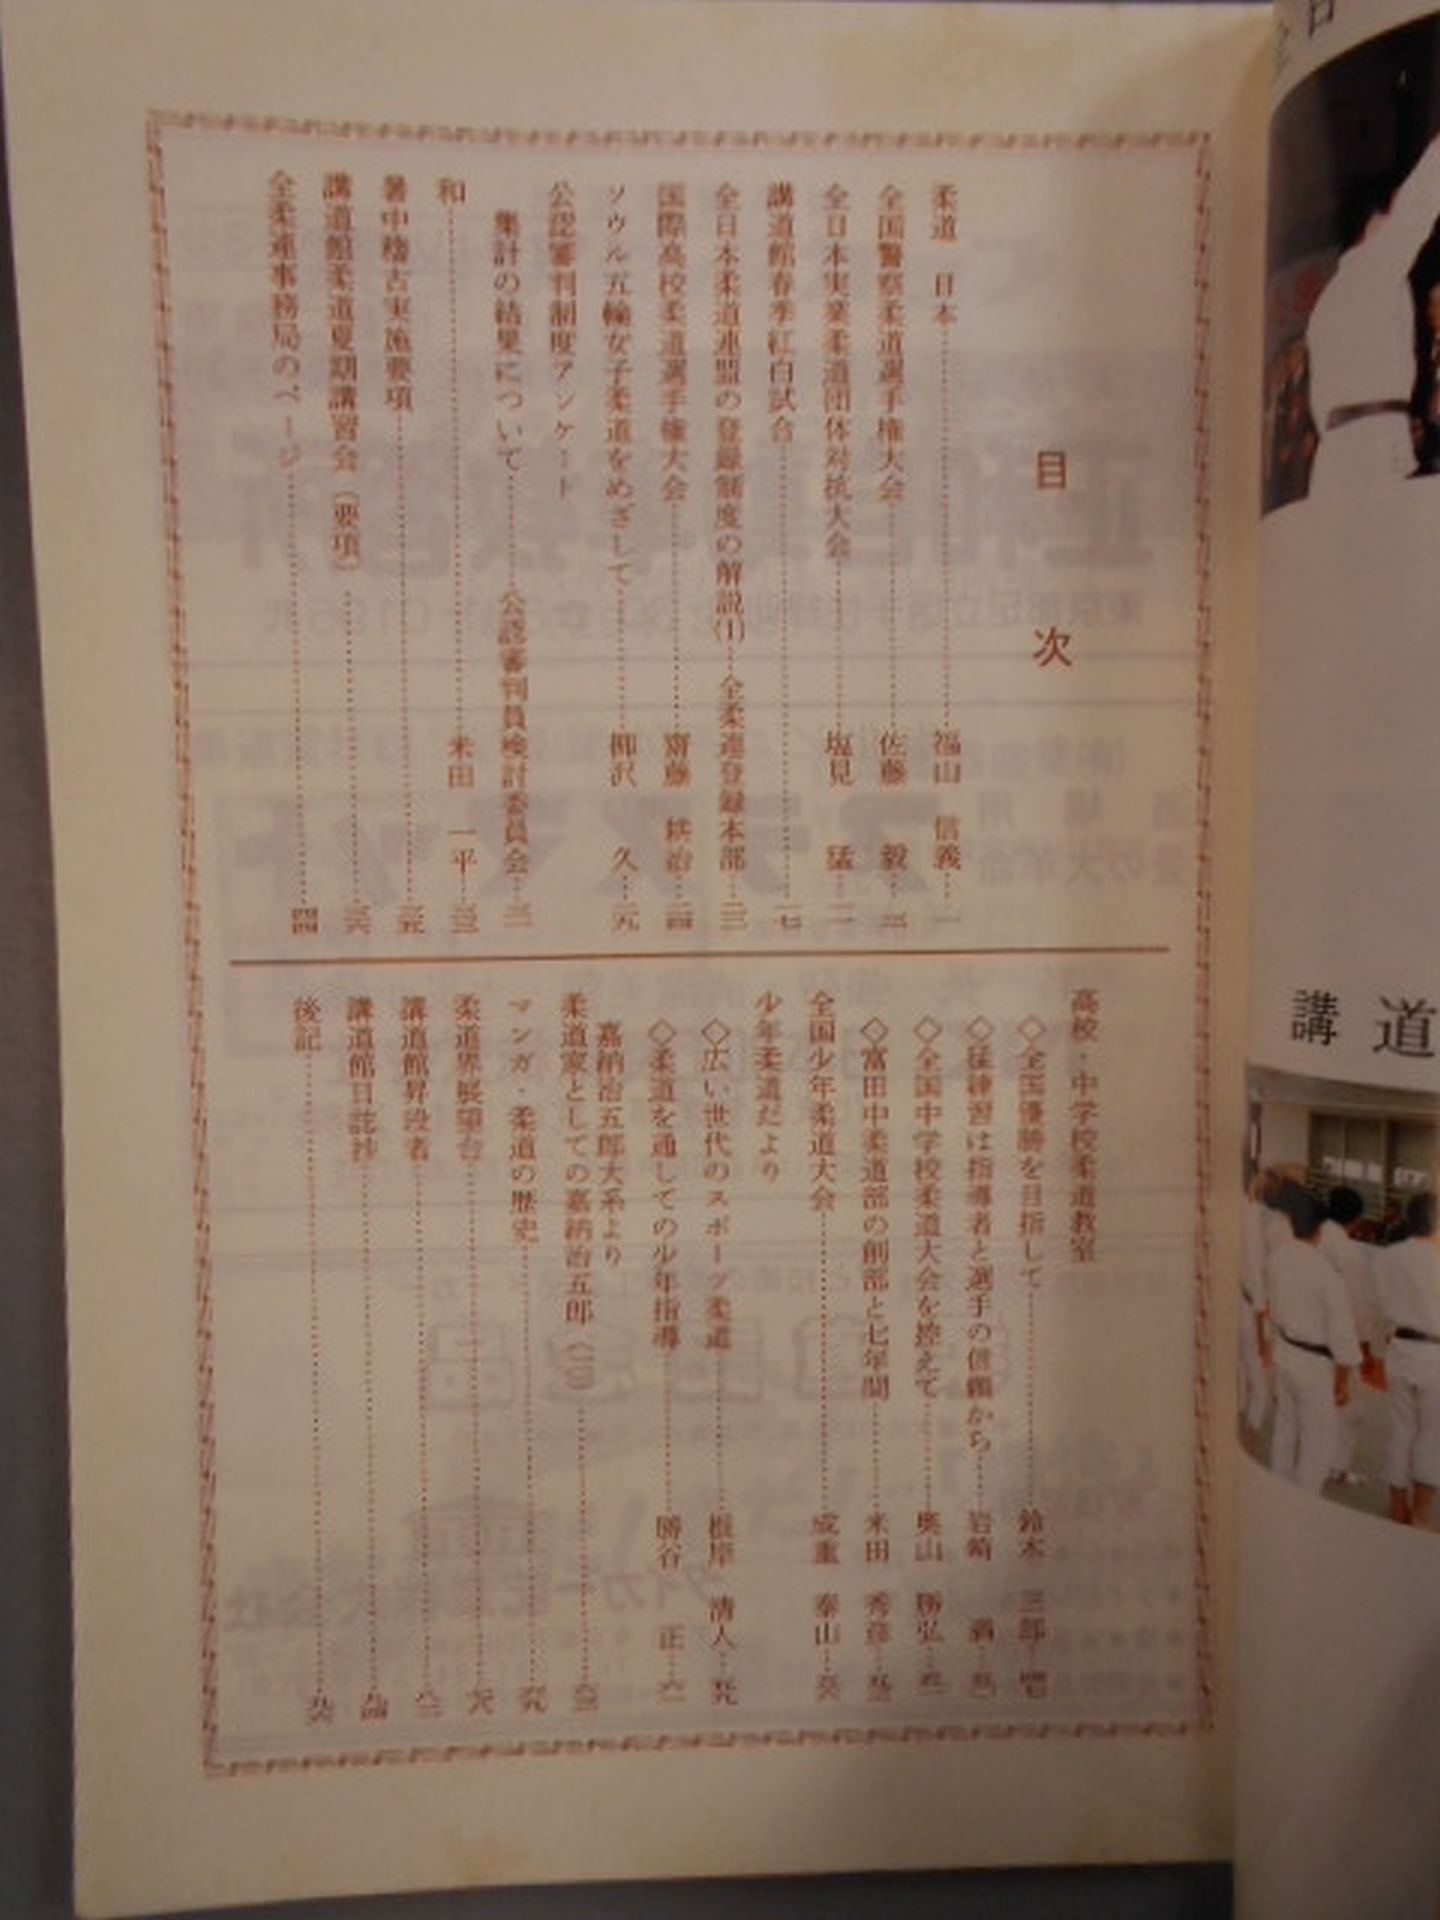 目次
柔道 日本……福山 信義……一
全国警察柔道選手権大会……佐藤 毅……
全日本実業柔道団体対抗大会……塩見 猛……
講道館春季紅白試合……一七
全日本柔道連盟の登録制度の解説(1)……全柔連登録本部……
国際高校柔道選手権大会……齋藤 耕治……二四
ソウル五輪女子柔道をめざして……柳沢 久……二九
公認審判制度アンケート
集計の結果について……公認審判員検討委員会……三一
和……米田 一平……三三
暑中稽古実施要項……三五
講道館柔道夏期講習会(要項)……三六
全柔連事務局のページ……四四
高校・中学校柔道教室
◇全国優勝を目指して……鈴木 三郎……四七
◇猛練習は指導者と選手の信頼から……岩崎
◇全国中学校柔道大会を控えて……奥山 勝弘
◇富田中柔道部の創部と七年間……米田 秀彦
全国少年柔道大会……成重 泰山……
少年柔道だより
◇広い世代のスポーツ柔道……根岸 清人……五九
◇柔道を通しての少年指導……勝谷 正……六一
嘉納治五郎大系より
柔道家としての嘉納治五郎
マンガ・柔道の歴史……六九
柔道界展望台……
講道館昇段者……
講道館日誌抄……
後記……
講道